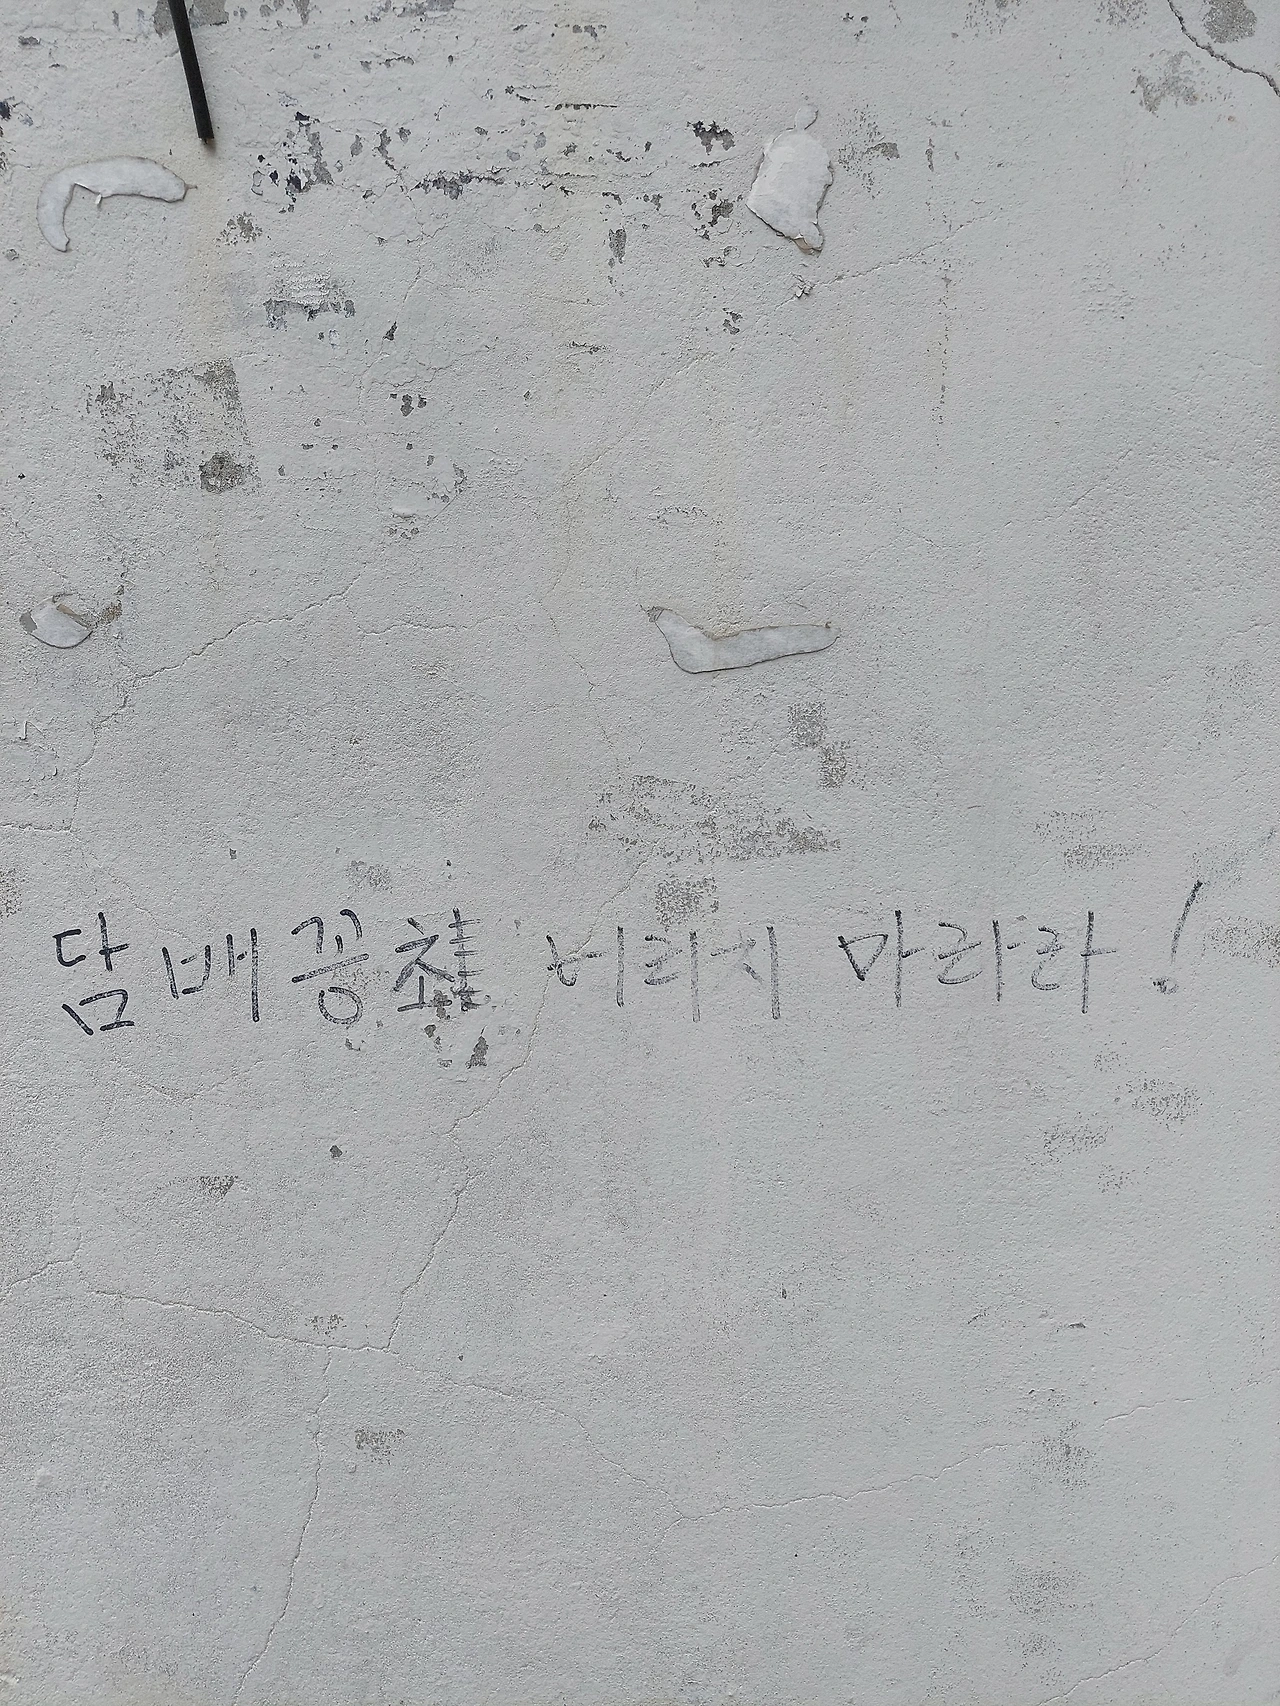 담배꽁초 버리지 마라라!